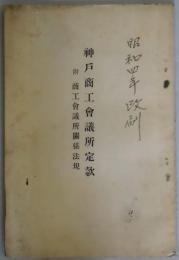 昭和四年改制
神戸商工會議所定款
附 商工會議所關係法規